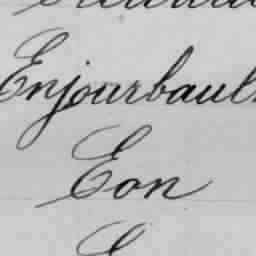 Enjourbault
Eon